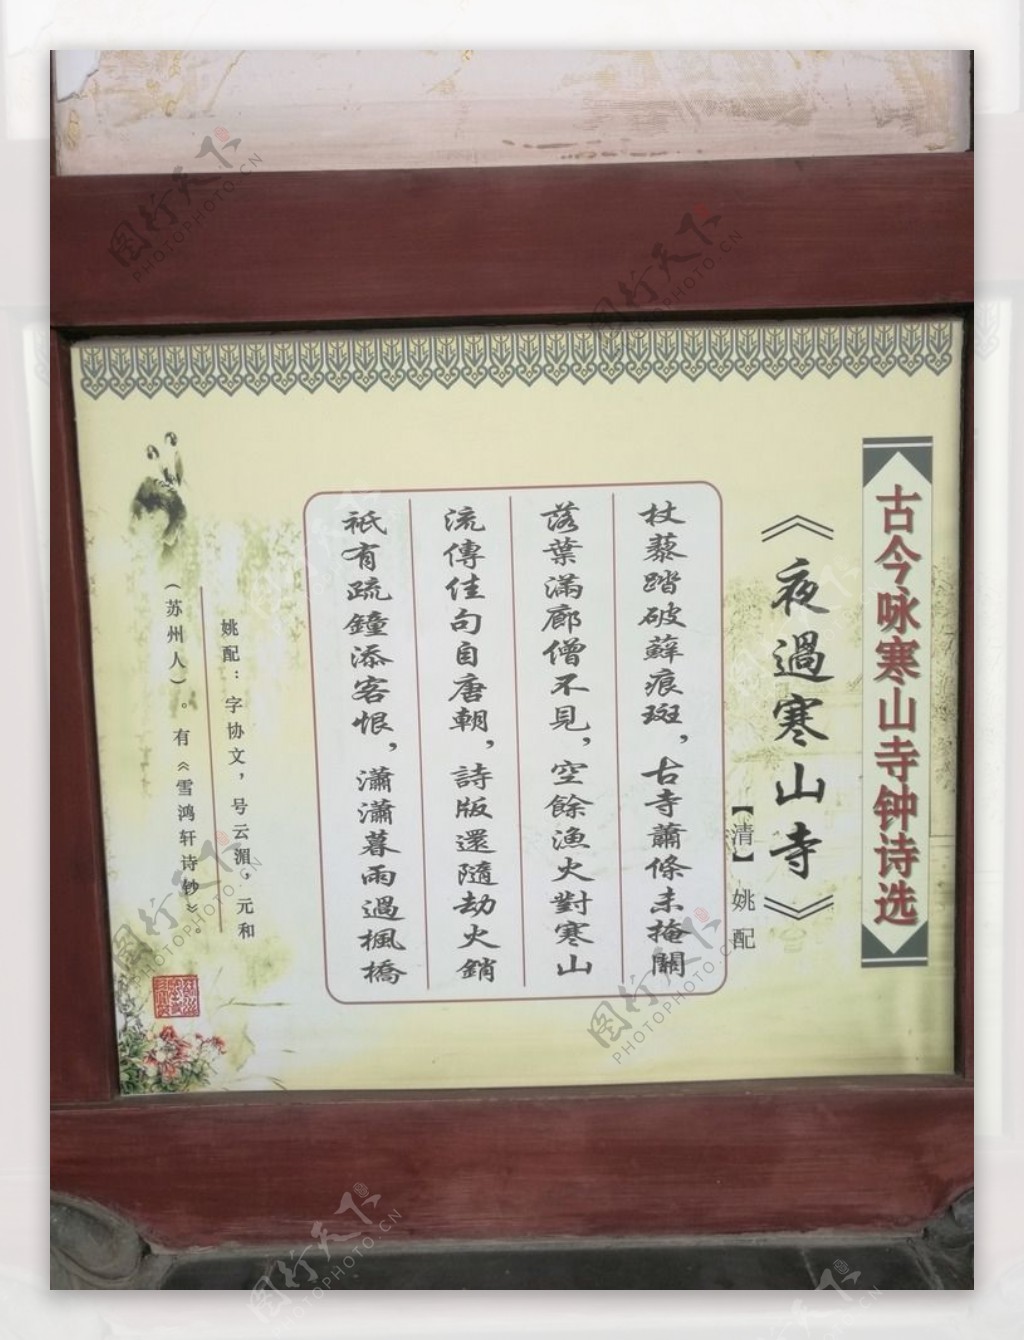 古今咏寒山寺钟诗选
《夜過寒山寺》
【清】姚配
杖藜踏破蘚痕斑，古寺蕭條未掩關
落葉滿廊僧不見，空餘漁火對寒山
流傳佳句自唐朝，詩版還隨劫火銷
祇有疏鐘添客恨，瀟瀟暮雨過楓橋
姚配：字协文，号云湄，元和
（苏州人）。有《雪鸿轩诗钞》。
图行天下
PHOTOPHOTO.CN